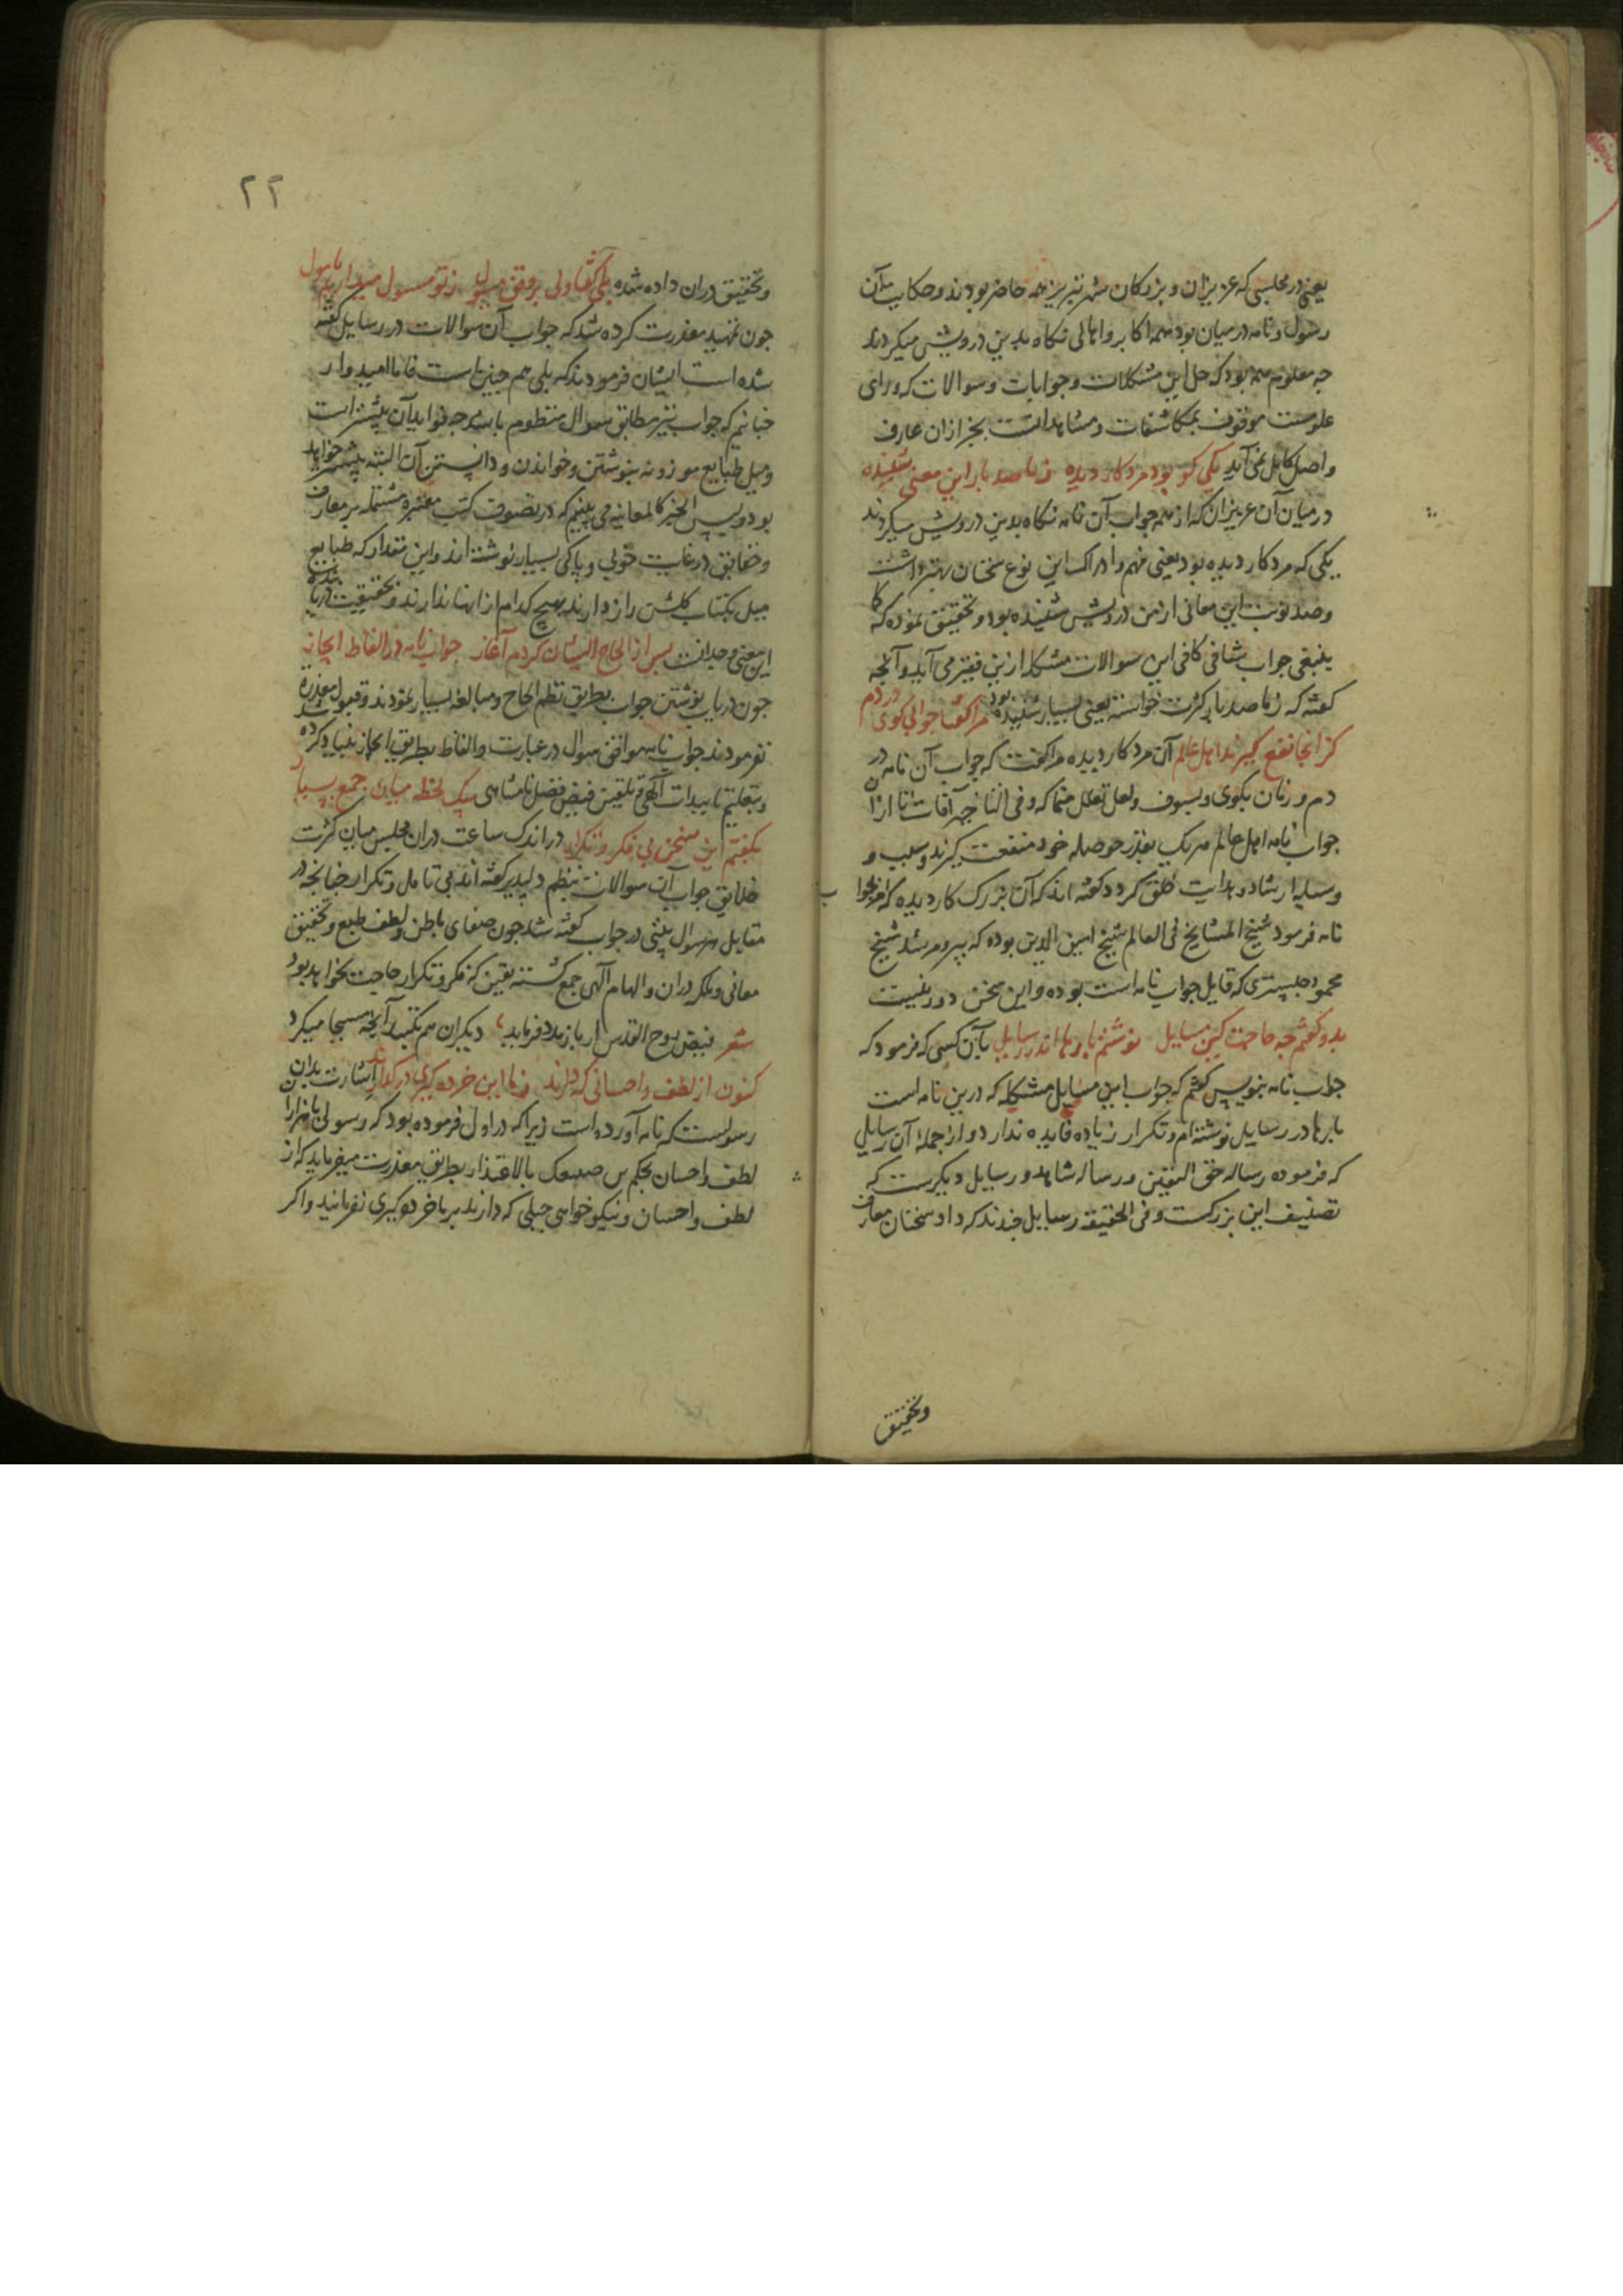 یعنی در مجلسی که عزیزان و بزرکان شهر تبریز همه حاضر بودند و حکایت آن
رسول و نامه در میان بود همه اکابر و اهالی نکاه بدین درویش میکردند
جه معلوم همه بود که حل این مشکلات و جوابات و سوالات که ورای
علومست موقوف بمکاشفات و مشاهداتست بجز از ان عارف
واصل کامل نمی آید یکی کو بود مرد کار دیده ز ما صد بار این معنی شنیده
در میان آن عزیزان که از بهر جواب آن نامه نکاه بدین درویش میکردند
یکی که مرد کار دیده بود یعنی فهم و ادراک این نوع سخنان بهتر داشت
و صد نوبت این معانی از من درویش شنیده بود و تحقیق نموده که کما
ینبغی جواب شافی کافی این سوالات مشکله ازین فقیر می آید و آنجه
کفته که ز ما صد بار کثرت خواسته یعنی بسیار شنیده بود مرا کفتا جوابی کوی در دم
کز انجا نفع کیرند اهل عالم آن مرد کار دیده مرا کفت که جواب آن نامه در
دم و زمان بکوی و بسوف و لعل تعلل منما که و فی التاخیر آفات تا از ان
جواب نامه اهل عالم هر یک بقدر حوصله خود منفعت کیرند و سبب و
وسیله ارشاد و هدایت خلق کردد کفته اند که آن بزرک کار دیده که امر بجواب
نامه فرمود شیخ المشایخ فی العالم شیخ امین الدین بوده که پیر و مرشد شیخ
محمود جبستری که قایل جواب نامه است بوده و این سخن دور نیست
بدو کفتم جه حاجت کین مسایل نوشتم بارها اندر رسایل بآن کسی که فرمود که
جواب نامه بنویس کفتم که جواب این مسایل مشکله که درین نامه است
بارها در رسایل نوشته ام و تکرار زیاده فایده ندارد و از جمله آن رسایلی
که فرموده رساله حق الیقین و رساله شاهد و رسایل دیکرست که
تصنیف این بزرکست و فی الحقیقه رسایل جندند که داد سخنان معارف
و تحقیق
۲۲
و تحقیق دران داده شده بلی کفتا ولی بر وفق مسول ز تو مسول میداریم مامول
جون تمهید معذرت کرده شد که جواب آن سوالات در رسایل کفته
شده است ایشان فرمودند که بلی هم جنین است فاما امیدوار
جنانیم که جواب نیز مطابق سوال منظوم باشد جه فواید آن بیشتر است
و میل طبایع موزونه بنوشتن و خواندن و دانستن آن البته بیشتر خواهد
بود و لیس الخبر کالمعاینه می بینیم که در تصوف کتب معتبره مشتمله بر معارف
و حقایق در غایت خوبی و پاکی بسیار نوشته اند و این مقدار که طبایع
میل بکتاب کلشن راز دارند بهیج کدام از اینها ندارند و بحقیقت دریابنده
این معنی وجدانست پس از الحاح ایشان کردم آغاز جواب نامه در الفاظ ایجاز
جون در باب نوشتن جواب بطریق نظم الحاح و مبالغه بسیار نمودند و قبول معذره
نفرمودند جواب نامه موافق سوال در عبارت و الفاظ بطریق ایجاز بنیاد کرده شد
و بتعلیم تاییدات آلهی و تلقین فیض فضل نامتناهی بیک لحظه میان جمع بسیار
بکفتم این سخن بی فکر و تکرار در اندک ساعت دران مجلس میان کثرت
خلایق جواب آن سوالات بنظم دلپذیر کفته اند بی تامل و تکرار جنانجه در
مقابل هر سوال بیتی در جواب کفته شد جون صفای باطن و لطف طبع و تحقیق
معانی و ملکه دران و الهام آلهی جمع کشته یقین که فکر و تکرار حاجت نخواهد بود
شعر فیض روح القدس ار باز مدد فرماید دیکران هم بکنند آنجه مسیحا میکرد
کنون از لطف و احسانی که دارند ز ما این خرده کیری در کذارند اشارت بدان
رسولست که نامه آورده است زیرا که در اول فرموده بود که رسولی با هزاران
لطف و احسان بحکم من صنف بالاعتذار بطریق معذرت میفرماید که از
لطف و احسان و نیکوخواهی جبلی که دارند بر ما خرده کیری نفرمایند و اکر